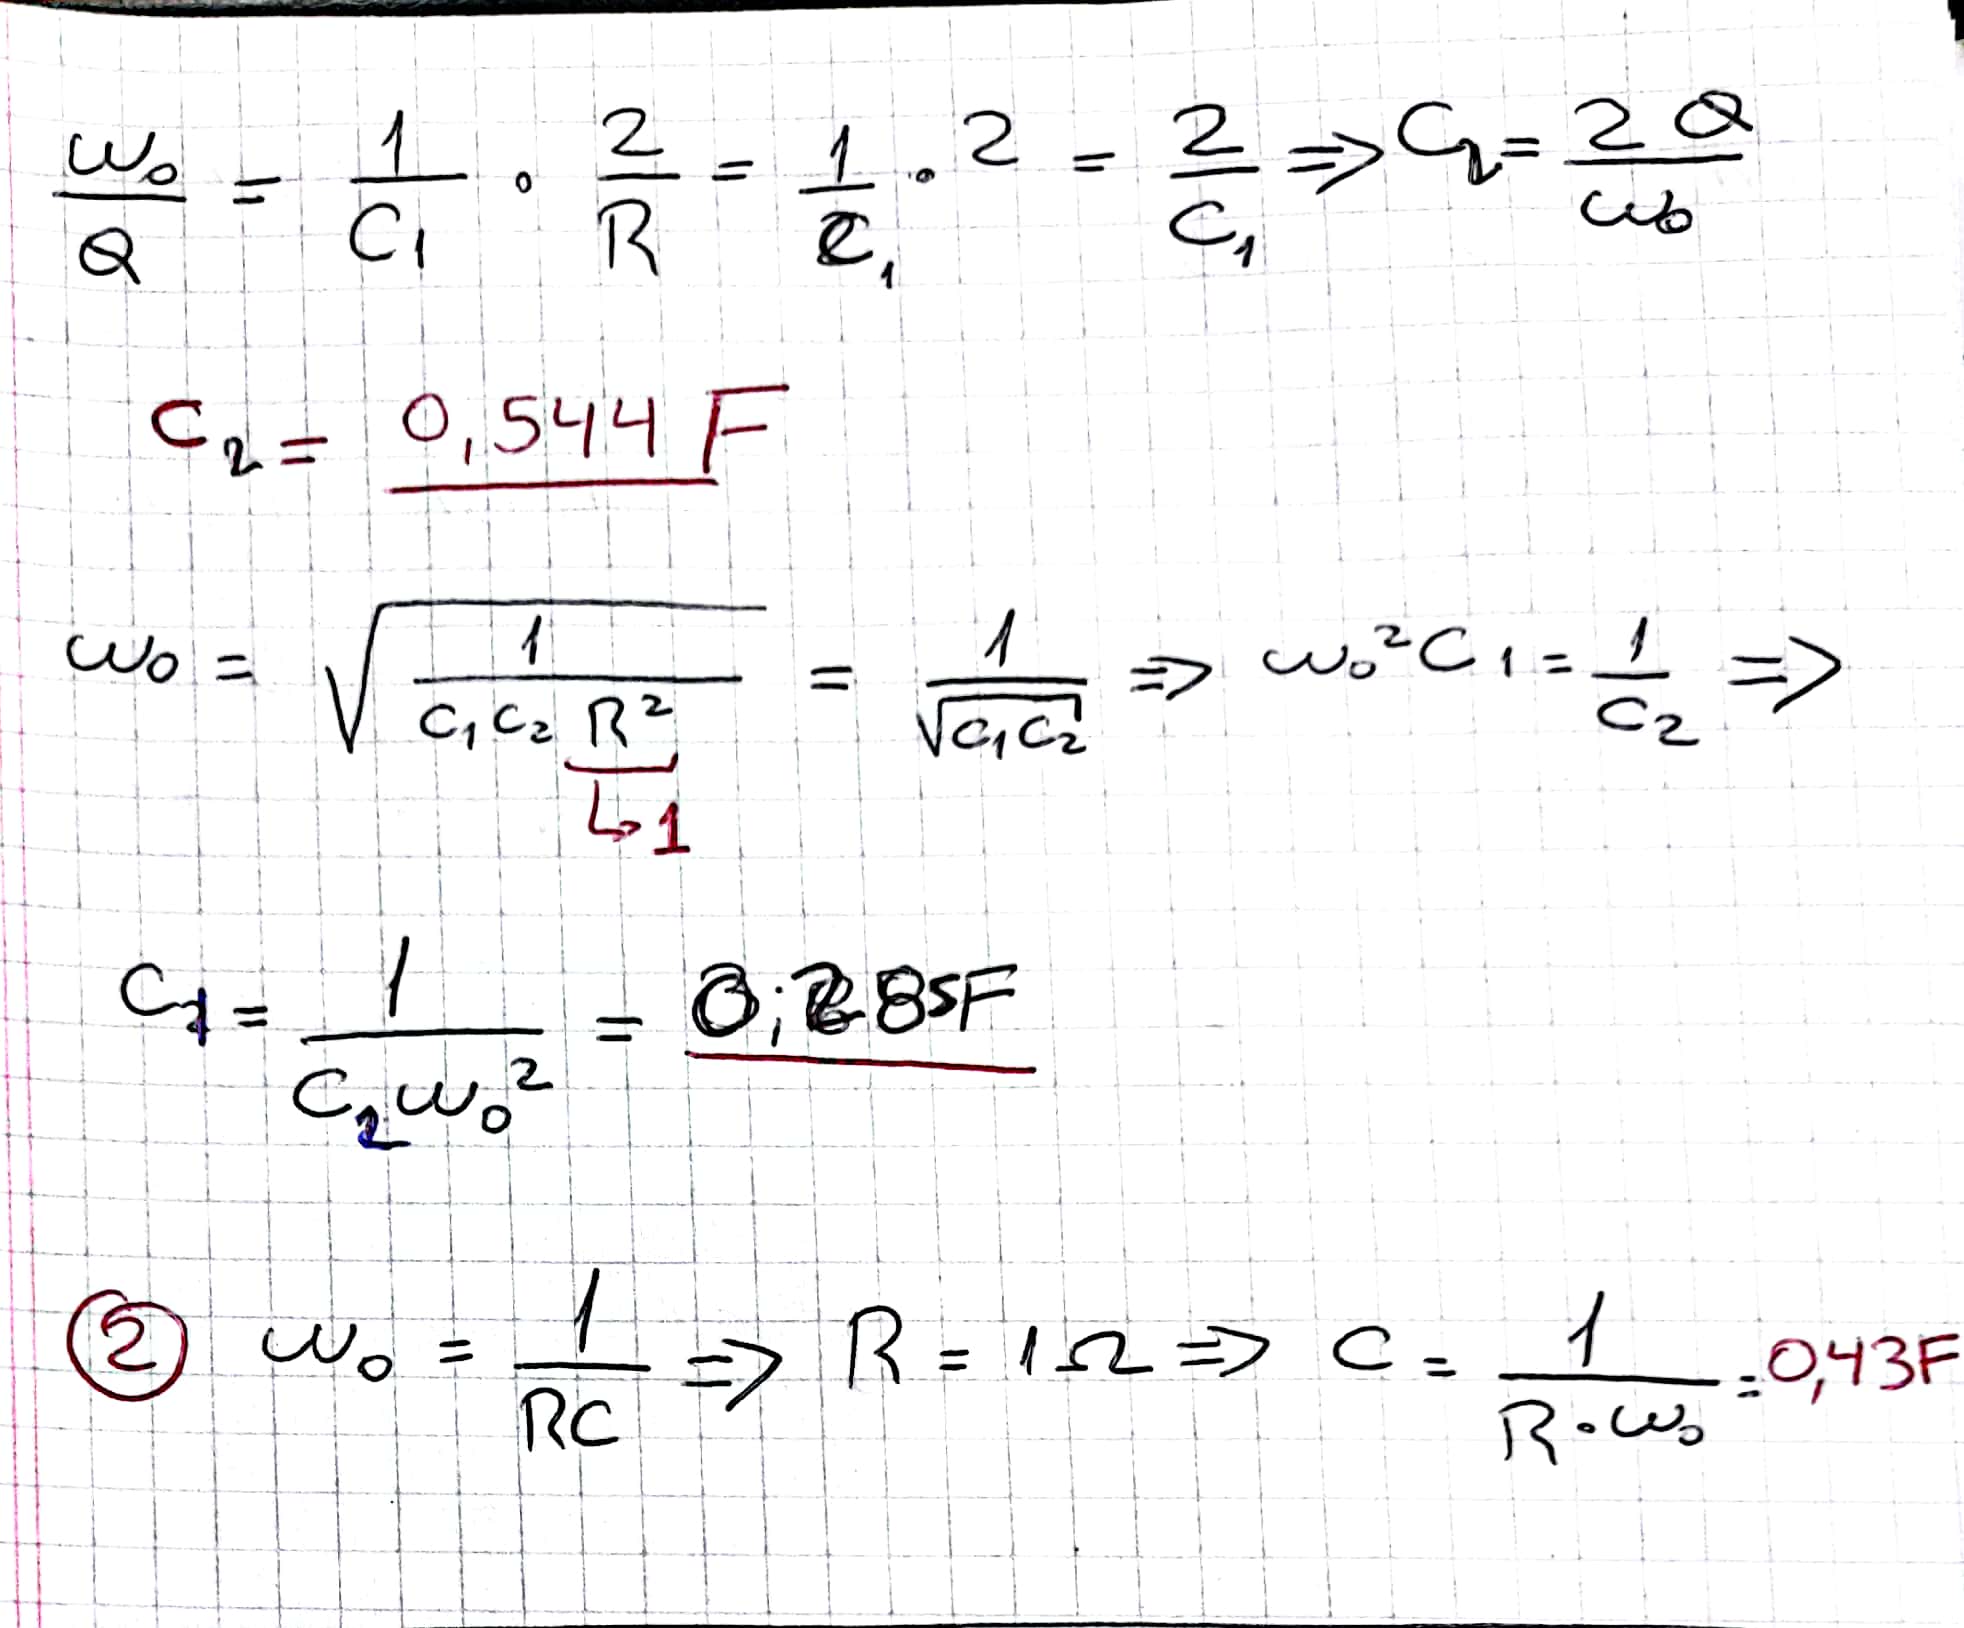 ω₀/Q = 1/C₁ · 2/R = 1/C₁ · 2 = 2/C₁ ⇒ C₂ = 2Q/ω₀
C₂ = 0,544 F
ω₀ = √(1/(C₁C₂R²)) = 1/√(C₁C₂) ⇒ ω₀²C₁ = 1/C₂ ⇒
↳ 1
C₁ = 1/(C₂ω₀²) = 0,285F
② ω₀ = 1/(RC) ⇒ R = 1Ω ⇒ C = 1/(R·ω₀) = 0,43F